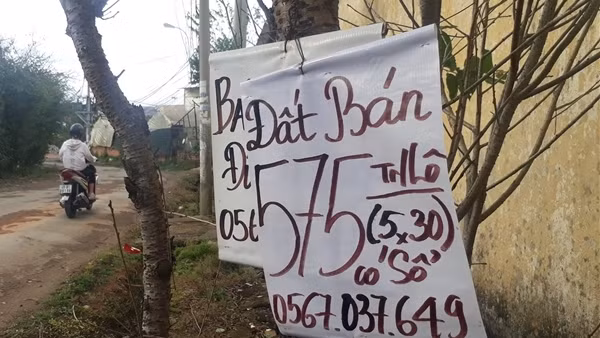 Đất Bán
575 Tr/Lô
(5x30)
có "Sổ"
0567.037.649
BA
Đi
056